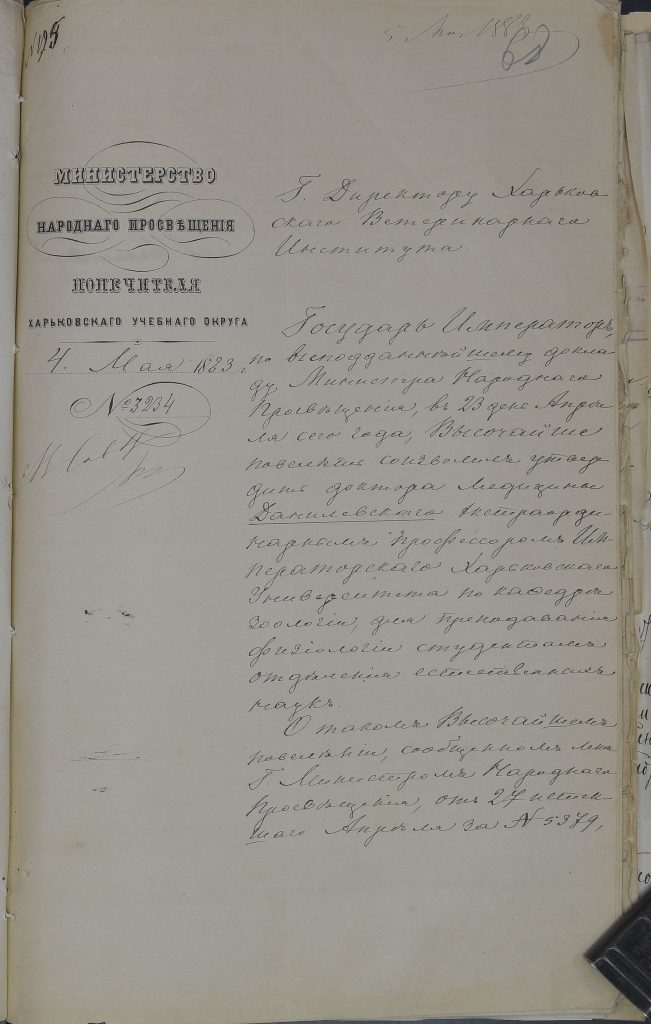 № 195
5 Мая 1883
62
МИНИСТЕРСТВО
НАРОДНАГО ПРОСВѢЩЕНІЯ
ПОПЕЧИТЕЛЯ
ХАРЬКОВСКАГО УЧЕБНАГО ОКРУГА
4 Мая 1883 г.
№ 3234
Г. Директору Харьков
скаго Ветеринарнаго
Института.
Государь Императоръ,
по всеподданнѣйшему докла-
ду Министра Народнаго
Просвѣщенія, въ 23 день Апрѣ
ля сего года, Высочайше
повелѣть соизволилъ утвер
дить доктора медицины
Данилевскаго Экстраорди-
нарнымъ профессоромъ Им-
ператорскаго Харьковскаго
Университета по кафедрѣ
зоологіи, для преподаванія
физіологіи студентамъ
отдѣленія естественныхъ
наукъ.
О такомъ Высочайшемъ
повелѣніи, сообщенномъ мнѣ
Г. Министромъ Народнаго
Просвѣщенія, отъ 27 истек-
шаго Апрѣля за № 5379,